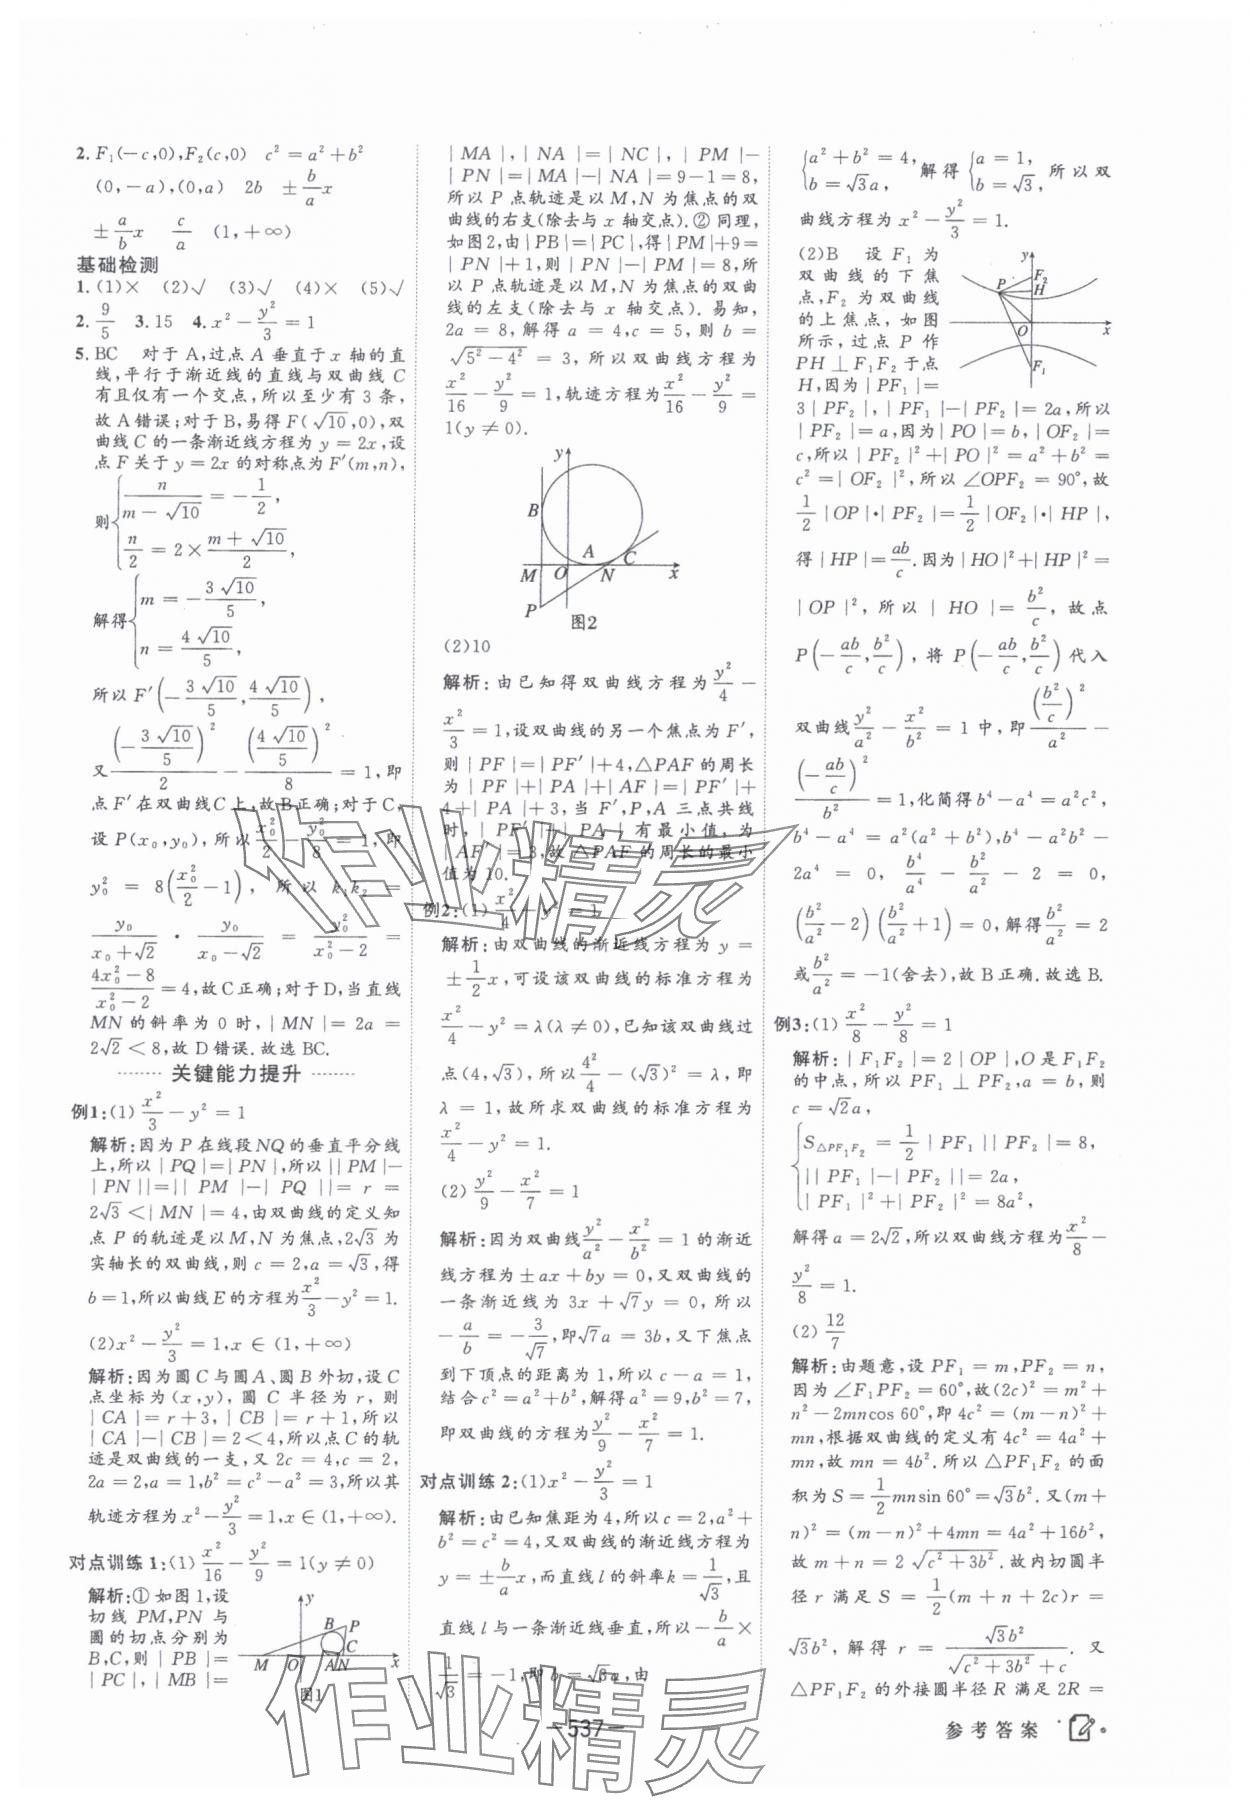 2. F₁(−c,0),F₂(c,0)  c²=a²+b²
(0,−a),(0,a)  2b  ±b/a x
±a/b x  c/a  (1,+∞)
基础检测
1. (1)×  (2)√  (3)√  (4)×  (5)√
2. 9/5  3. 15  4. x²−y²/3=1
5. BC  对于 A,过点 A 垂直于 x 轴的直
线,平行于渐近线的直线与双曲线 C
有且仅有一个交点,所以至少有 3 条,
故 A 错误;对于 B,易得 F(√10,0),双
曲线 C 的一条渐近线方程为 y=2x,设
点 F 关于 y=2x 的对称点为 F′(m,n),
则{n/(m−√10)=−1/2,
n/2=2×(m+√10)/2,
解得{m=−3√10/5,
n=4√10/5,
所以 F′(−3√10/5,4√10/5),
又(−3√10/5)²/2−(4√10/5)²/8=1,即
点 F′在双曲线 C 上,故 B 正确;对于 C,
设 P(x₀,y₀),所以 x₀²/2−y₀²/8=1,即
y₀²=8(x₀²/2−1),所以 k₁k₂=
y₀/(x₀+√2)·y₀/(x₀−√2)=y₀²/(x₀²−2)=
(4x₀²−8)/(x₀²−2)=4,故 C 正确;对于 D,当直线
MN 的斜率为 0 时,|MN|=2a=
2√2<8,故 D 错误.故选 BC.
关键能力提升
例1:(1)x²/3−y²=1
解析:因为 P 在线段 NQ 的垂直平分线
上,所以|PQ|=|PN|,所以||PM|−
|PN||=||PM|−|PQ||=r=
2√3<|MN|=4,由双曲线的定义知
点 P 的轨迹是以 M,N 为焦点,2√3 为
实轴长的双曲线,则 c=2,a=√3,得
b=1,所以曲线 E 的方程为 x²/3−y²=1.
(2)x²−y²/3=1,x∈(1,+∞)
解析:因为圆 C 与圆 A、圆 B 外切,设 C
点坐标为(x,y),圆 C 半径为 r,则
|CA|=r+3,|CB|=r+1,所以
|CA|−|CB|=2<4,所以点 C 的轨
迹是双曲线的一支,又 2c=4,c=2,
2a=2,a=1,b²=c²−a²=3,所以其
轨迹方程为 x²−y²/3=1,x∈(1,+∞).
对点训练 1:(1)x²/16−y²/9=1(y≠0)
解析:①如图 1,设
切线 PM,PN 与
圆的切点分别为
B,C,则|PB|=
|PC|,|MB|=
y
B P
C
M O A N x
图1
|MA|,|NA|=|NC|,|PM|−
|PN|=|MA|−|NA|=9−1=8,
所以 P 点轨迹是以 M,N 为焦点的双
曲线的右支(除去与 x 轴交点).②同理,
如图2,由|PB|=|PC|,得|PM|+9=
|PN|+1,则|PN|−|PM|=8,所
以 P 点轨迹是以 M,N 为焦点的双曲
线的左支(除去与 x 轴交点).易知,
2a=8,解得 a=4,c=5,则 b=
√(5²−4²)=3,所以双曲线方程为
x²/16−y²/9=1,轨迹方程为 x²/16−y²/9=
1(y≠0).
y
B
A C
M O N x
P
图2
(2)10
解析:由已知得双曲线方程为 y²/4−
x²/3=1,设双曲线的另一个焦点为 F′,
则|PF|=|PF′|+4,△PAF 的周长
为|PF|+|PA|+|AF|=|PF′|+
4+|PA|+3,当 F′,P,A 三点共线
时,|PF′|+|PA|有最小值,为
|AF′|=3,故△PAF 的周长的最小
值为 10.
例2:(1)x²/4−y²=1
解析:由双曲线的渐近线方程为 y=
±1/2 x,可设该双曲线的标准方程为
x²/4−y²=λ(λ≠0),已知该双曲线过
点(4,√3),所以 4²/4−(√3)²=λ,即
λ=1,故所求双曲线的标准方程为
x²/4−y²=1.
(2)y²/9−x²/7=1
解析:因为双曲线 y²/a²−x²/b²=1 的渐近
线方程为±ax+by=0,又双曲线的
一条渐近线为 3x+√7y=0,所以
−a/b=−3/√7,即√7a=3b,又下焦点
到下顶点的距离为 1,所以 c−a=1,
结合 c²=a²+b²,解得 a²=9,b²=7,
即双曲线的方程为 y²/9−x²/7=1.
对点训练 2:(1)x²−y²/3=1
解析:由已知焦距为 4,所以 c=2,a²+
b²=c²=4,又双曲线的渐近线方程为
y=±b/a x,而直线 l 的斜率 k=1/√3,且
直线 l 与一条渐近线垂直,所以−b/a×
1/√3=−1,即 b=√3a,由
{a²+b²=4, b=√3a, 解得{a=1, b=√3, 所以双
曲线方程为 x²−y²/3=1.
(2)B  设 F₁ 为
双曲线的下焦
点,F₂ 为双曲线
的上焦点,如图
所示,过点 P 作
PH⊥F₁F₂ 于点
H,因为|PF₁|=
y
F₂
P H
O x
F₁
3|PF₂|,|PF₁|−|PF₂|=2a,所以
|PF₂|=a,因为|PO|=b,|OF₂|=
c,所以|PF₂|²+|PO|²=a²+b²=
c²=|OF₂|²,所以∠OPF₂=90°,故
1/2|OP|·|PF₂|=1/2|OF₂|·|HP|,
得|HP|=ab/c.因为|HO|²+|HP|²=
|OP|²,所以|HO|=b²/c,故点
P(−ab/c,b²/c),将 P(−ab/c,b²/c)代入
双曲线 y²/a²−x²/b²=1 中,即(b²/c)²/a²−
(−ab/c)²/b²=1,化简得 b⁴−a⁴=a²c²,
b⁴−a⁴=a²(a²+b²),b⁴−a²b²−
2a⁴=0,b⁴/a⁴−b²/a²−2=0,
(b²/a²−2)(b²/a²+1)=0,解得 b²/a²=2
或 b²/a²=−1(舍去),故 B 正确.故选 B.
例3:(1)x²/8−y²/8=1
解析:|F₁F₂|=2|OP|,O 是 F₁F₂
的中点,所以 PF₁⊥PF₂,a=b,则
c=√2a,
{S△PF₁F₂=1/2|PF₁||PF₂|=8,
||PF₁|−|PF₂||=2a,
|PF₁|²+|PF₂|²=8a²,
解得 a=2√2,所以双曲线方程为 x²/8−
y²/8=1.
(2)12/7
解析:由题意,设 PF₁=m,PF₂=n,
因为∠F₁PF₂=60°,故(2c)²=m²+
n²−2mncos 60°,即 4c²=(m−n)²+
mn,根据双曲线的定义有 4c²=4a²+
mn,故 mn=4b².所以△PF₁F₂ 的面
积为 S=1/2 mnsin 60°=√3b².又(m+
n)²=(m−n)²+4mn=4a²+16b²,
故 m+n=2√(c²+3b²).故内切圆半
径 r 满足 S=1/2(m+n+2c)r=
√3b²,解得 r=√3b²/(√(c²+3b²)+c).又
△PF₁F₂ 的外接圆半径 R 满足 2R=
—537—
参考答案
作业精灵
作业精灵